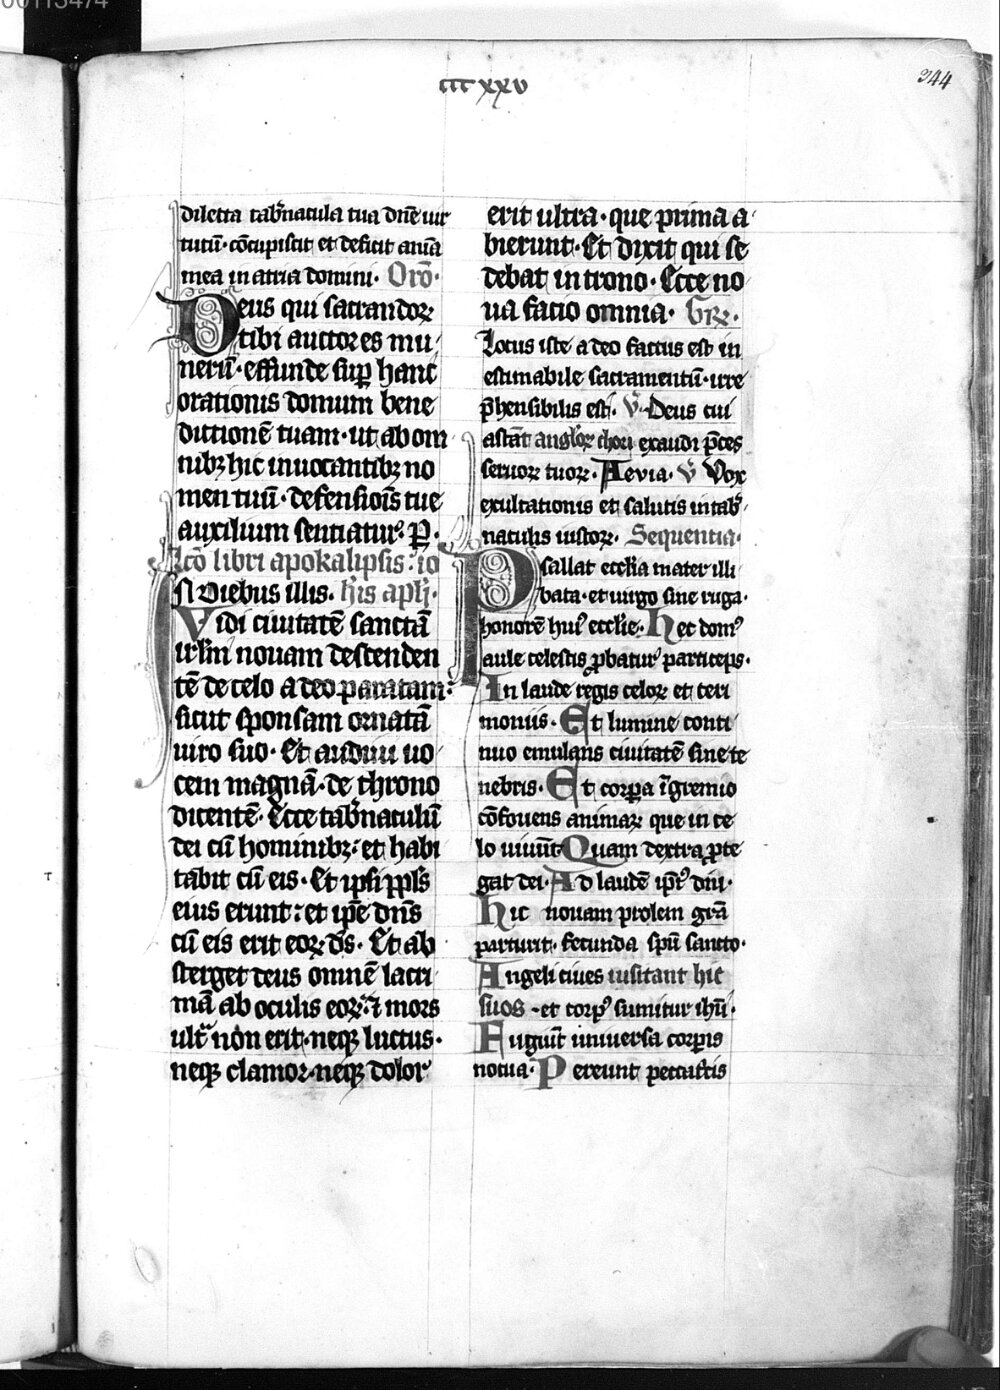 00113474
CCC XXV
344
dilecta tab̄nacula tua dn̄e uir
tutū· cōcupiscit et deficit anīa
mea in atria domini· Orō·
Deus qui sacrandoꝝ
tibi auctores mu
nerū· effunde suꝑ hanc
orationis domum bene
dictionē tuam· ut ab om
nibꝫ hic inuocantibꝫ no
men tuū· defensiōis tue
auxilium sentiatur. P.
Lcō libri apokalipsis· io
IN Diebus illis· h̄is apl̄i·
Vidi ciuitatē sanctā
irl̄m nouam descenden
tē de celo a deo paratam·
sicut sponsam ornatā
uiro suo· Et audiui uo
cem magnā· de throno
dicentē· Ecce tab̄naculū
dei cū hominibꝫ· et habi
tabit cū eis· Et ipsi ppl̄s
eius erunt· et ip̄e dn̄s
cū eis erit eoꝝ ds̄· Et ab
sterget deus omnē lacri
mā ab oculis eoꝝ· ⁊ mors
ultᵃ non erit· neqꝫ luctus·
neqꝫ clamor· neqꝫ dolor
erit ultra· que prima a
bierunt· Et dixit qui se
debat in trono· Ecce no
ua facio omnia· Gꝝ·
Locus iste a deo factus est in
estimabile sacramentū· irre
p̄hensibilis est· V̄· Deus cui
astāt angl̄oꝝ chori exaudi p̄ces
seruoꝝ tuoꝝ· Aeuia· V̄ Vox
exultationis et salutis in tab̄
naculis iustoꝝ· Sequentia·
Psallat eccl̄ia mater illi
bata· et uirgo sine ruga·
honorē huiꝰ eccl̄ie· Hec domꝰ
aule celestis ꝓbatur particeps·
In laude regis celoꝝ et ceri
moniis· Et lumine conti
nuo emulans ciuitatē sine te
nebris· Et corꝑa ī gremio
cōfouens animaꝝ que in ce
lo uiuūt· Quam dextra ꝓte
gat dei· Ad laudē ip̄iꝰ diu·
Hic nouam prolem grā
parturit· fecunda spū sancto·
Angeli ciues uisitant hic
suos· et corpꝰ sumitur ih̄u·
Fugiūt uniuersa corꝑis
nocua· Pereunt peccatis